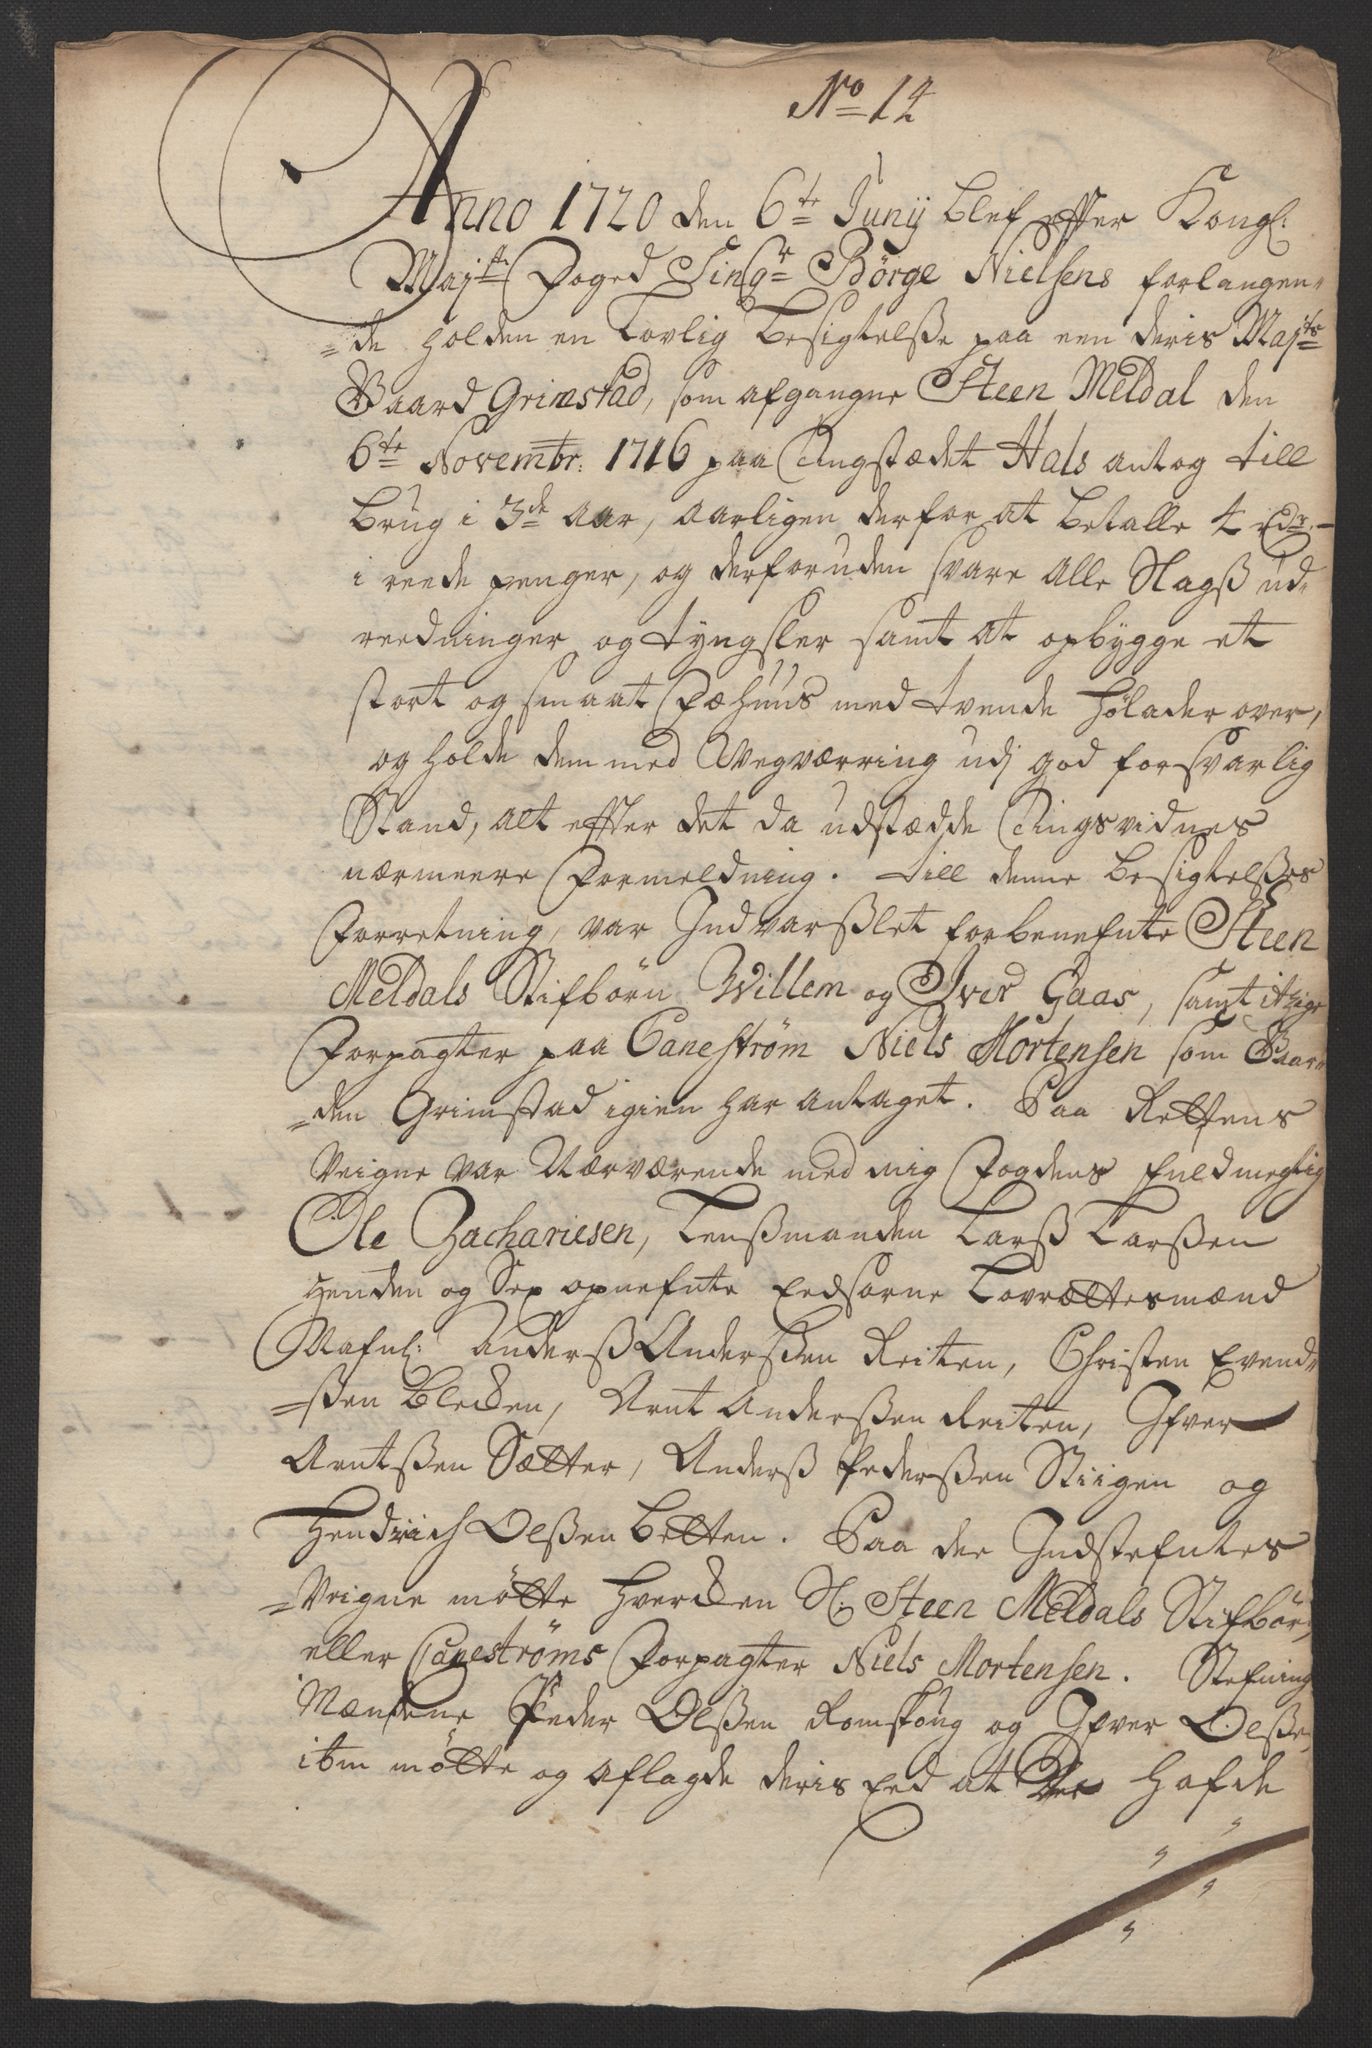 No 14
Anno 1720 den 6te Junij blef effter Kongl:
Majsts: Foged Singr Børge Nielsens forlangen-
=de holden en Lovlig besigtelße paa een deris Majts
Gaard Grimstad, som afgangne Steen Meldal den
6te Novembr: 1716 paa Tingstædet Hals antog till
brug i 3de Aar, aarligen derfor at betalle 4 rdr.
i reede penger, og derforuden svare alle Slagß ud-
reedninger og tyngsler samt at opbygge et
stort og smaat Fæhuus med tvende Høladder over,
og holde dem med Vegværring udj god forsvarlig
Stand, alt effter det da udstædde Tingsvidnes
nærmeere Formeldning. till denne besigtelßes
Forretning, var Indvarßlet forbenefnte Steen
Meldals Stifbørn Willem og Iver Gaas, samt itzige
Forpagter paa Canestrøm Niels Mortensen som Gaar-
=den Grimstad igien har antaget. Paa Rettens
Veigne var Nærværende med mig Fogdens fuldmegtig
Ole Zachariesen, Lenßmanden Larß Larßen
Henden og Sex opnefnte Eedsorne Lovrættesmænd
Nafnl: Anderß Anderßen Reiten, Christen Evend-
=ßen Blecken, Arnt Anderßen Reiten, Ifver
Arntßen Sætter, Anderß Pederßen Stiigen og
Hendrich Olßen Betten. Paa de Indstefntes
=Veigne møtte hvercken Sl: Steen Meldals Stifbør-
eller Canestrøms Forpagter Niels Mortensen. Stefning
Mændene Peder Olßen Romstøng og Ifver Olße-
ibm møtte og aflagde deris Eed at De hafde